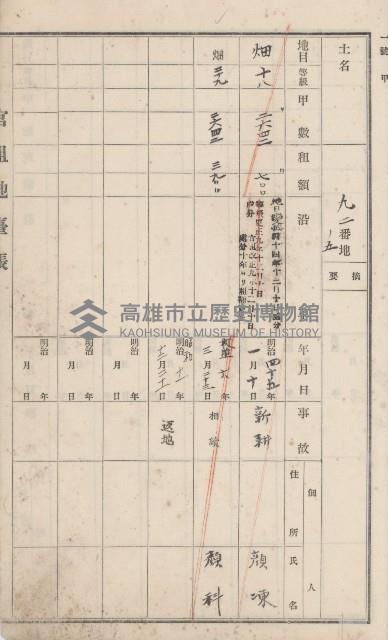 一號 甲
土名
九二番地
ノ五
摘要
地目
等級
甲數
租額
沿
年月日
事故
佃人
住所
氏名
畑 十八
二六四二
七〇〇
明治 四十五年
一月十日
新耕
顏凍
畑 三九
二六四二
三九〇
三月
相續
顏科
昭和 十一年
十二月二十一日
返地
明治 年
月 日
明治 年
月 日
明治 年
月 日
官租地臺帳
高雄市立歷史博物館
KAOHSIUNG MUSEUM OF HISTORY